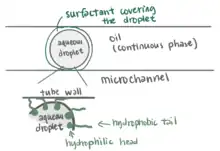 surfactant covering
the droplet
aqueous
droplet
oil
(continuous phase)
microchannel
tube wall
aqueous
droplet
hydrophobic tail
hydrophilic head